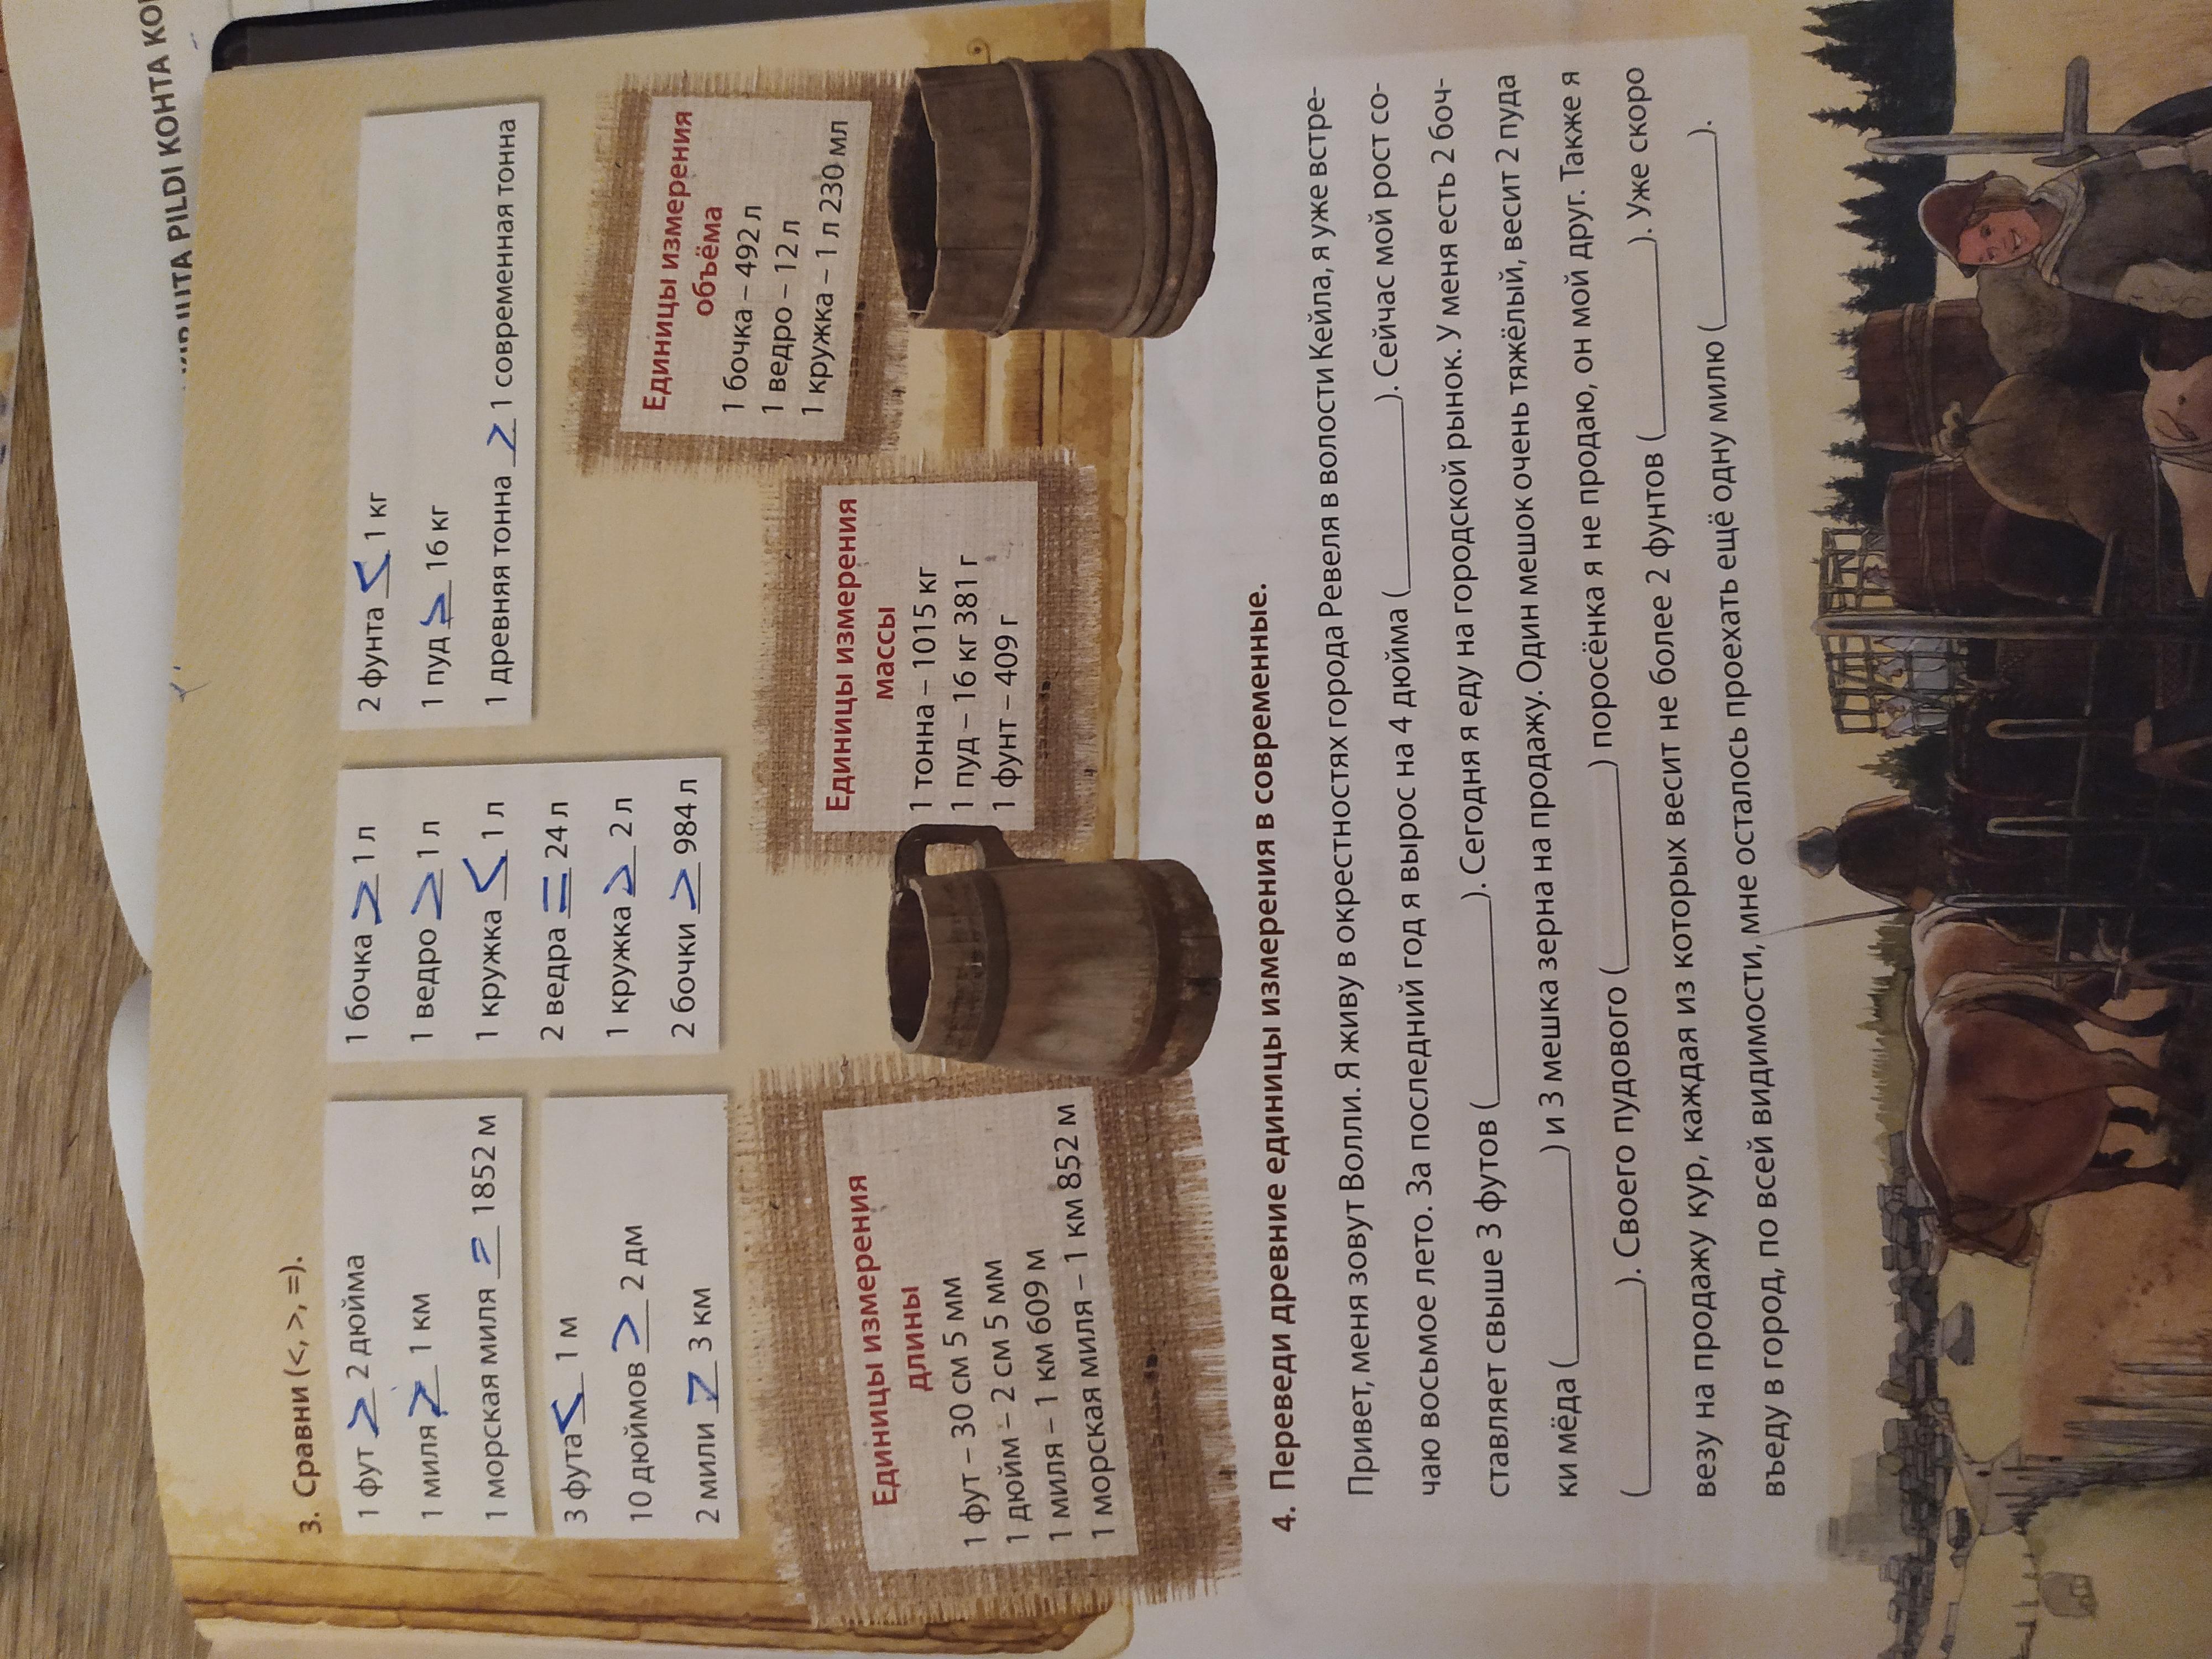 PILDI KOHTA
3. Сравни (<, >, =).
1 фут > 2 дюйма
1 миля > 1 км
1 морская миля = 1852 м
3 фута < 1 м
10 дюймов > 2 дм
2 мили > 3 км
1 бочка > 1 л
1 ведро > 1 л
1 кружка < 1 л
2 ведра = 24 л
1 кружка > 2 л
2 бочки > 984 л
2 фунта < 1 кг
1 пуд > 16 кг
1 древняя тонна > 1 современная тонна
Единицы измерения
длины
1 фут – 30 см 5 мм
1 дюйм – 2 см 5 мм
1 миля – 1 км 609 м
1 морская миля – 1 км 852 м
Единицы измерения
массы
1 тонна – 1015 кг
1 пуд – 16 кг 381 г
1 фунт – 409 г
Единицы измерения
объёма
1 бочка – 492 л
1 ведро – 12 л
1 кружка – 1 л 230 мл
4. Переведи древние единицы измерения в современные.
Привет, меня зовут Волли. Я живу в окрестностях города Ревеля в волости Кейла, я уже встре-
чаю восьмое лето. За последний год я вырос на 4 дюйма (__________). Сейчас мой рост со-
ставляет свыше 3 футов (__________). Сегодня я еду на городской рынок. У меня есть 2 боч-
ки мёда (__________) и 3 мешка зерна на продажу. Один мешок очень тяжёлый, весит 2 пуда
(__________). Своего пудового (__________) поросёнка я не продаю, он мой друг. Также я
везу на продажу кур, каждая из которых весит не более 2 фунтов (__________). Уже скоро
въеду в город, по всей видимости, мне осталось проехать ещё одну милю (__________).